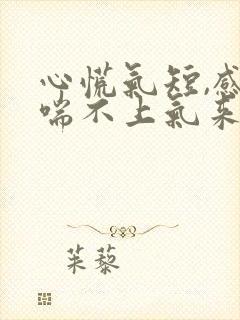 心慌氣短,感
喘不上氣來
茱藜